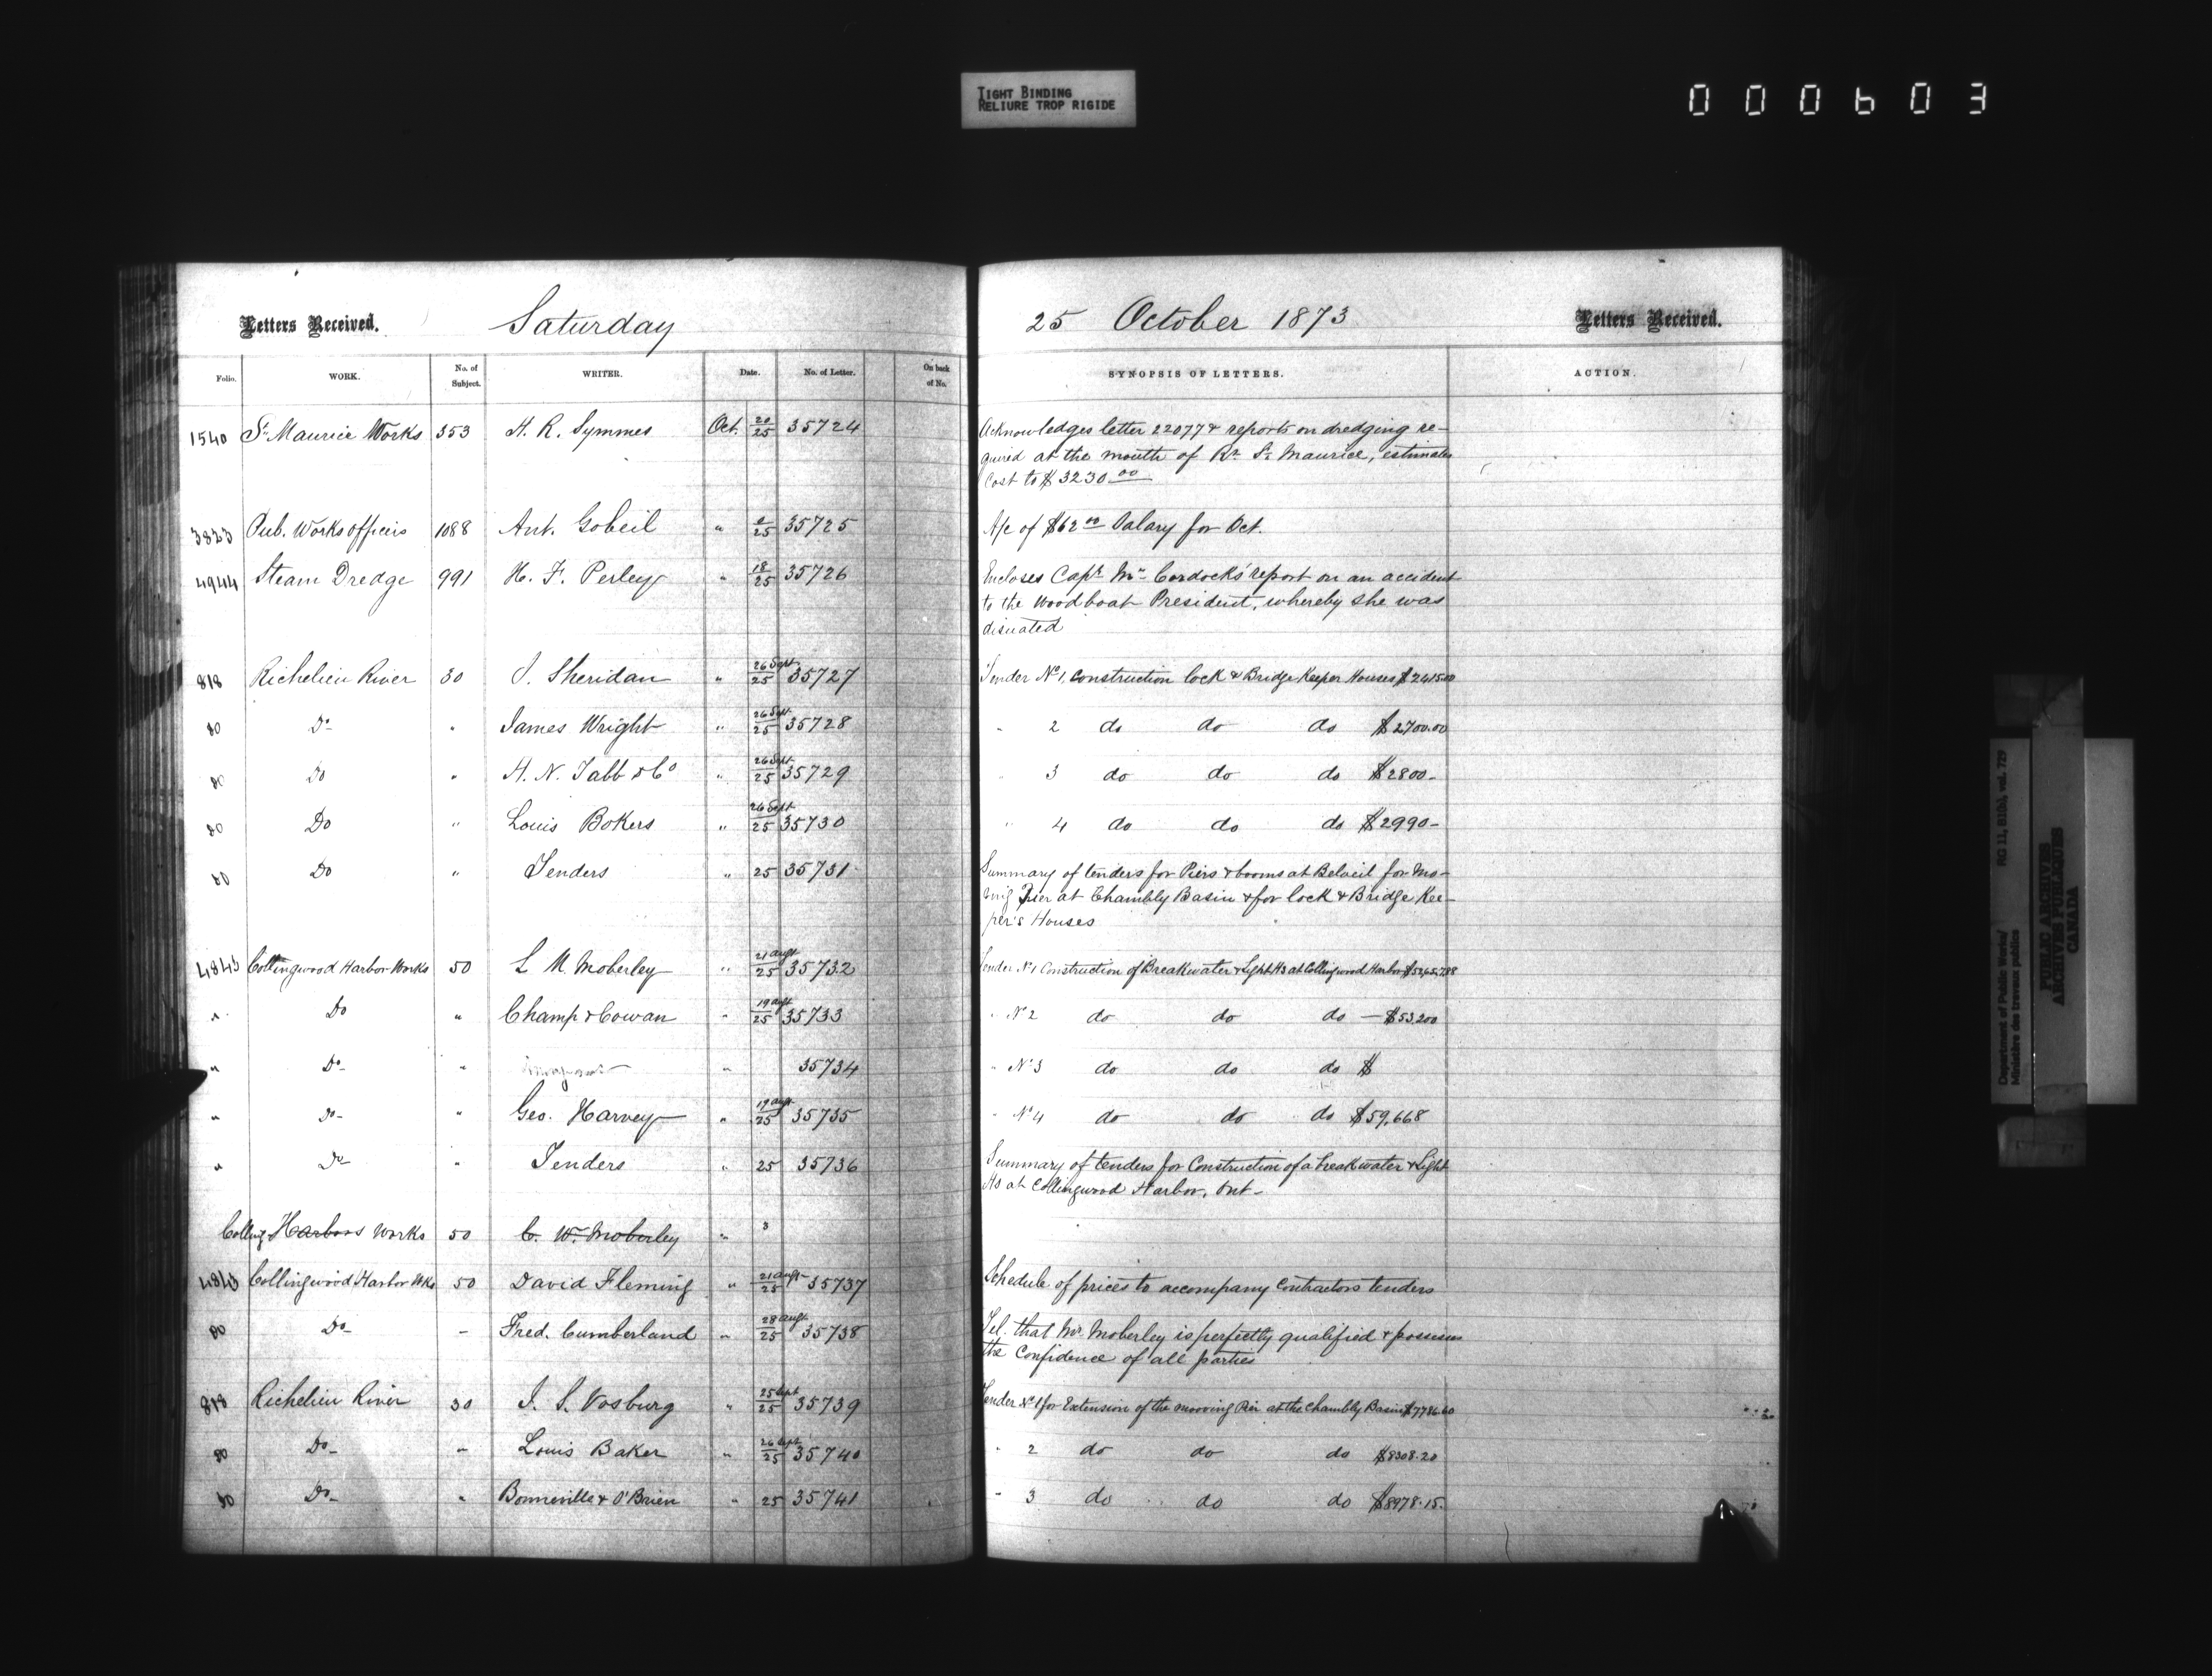 TIGHT BINDING
RELIURE TROP RIGIDE
000603
Letters Received. Saturday
Folio. WORK. No. of Subject. WRITER. Date. No. of Letter. On back of No.
1540 St Maurice Works 353 H. R. Symmes Oct. 20/25 35724
3823 Pub. Works officers 1088 Ant. Gobeil " 2/25 35725
4944 Steam Dredge 991 H. F. Perley " 18/25 35726
818 Richelieu River 30 J. Sheridan " 26 Sept/25 35727
do Do " James Wright " 26 Sept/25 35728
do Do " H. N. Tabb & Co " 26 Sept/25 35729
do Do " Louis Bokers " 26 Sept/25 35730
do Do " Tenders " 25 35731
4845 Collingwood Harbor Works 50 L M Moberley " 21 augt/25 35732
" Do " Champ & Cowan " 19 augt/25 35733
" Do " " 35734
" Do " Geo. Harvey " 19 augt/25 35735
" Do " Tenders " 25 35736
Colling Harbors Works 50 C. W. Moberley " 3
4845 Collingwood Harbor Wks 50 David Fleming " 21 augt/25 35737
do Do - Fred. Cumberland " 28 augt/25 35738
818 Richelieu River 30 J. S. Vosburg " 25 Sept/25 35739
do Do " Louis Baker " 26 Sept/25 35740
do Do " Bonneville & O'Brien " 25 35741
25 October 1873 Letters Received.
SYNOPSIS OF LETTERS. ACTION.
Acknowledges letter 22077 & reports on dredging re-
quired at the mouth of Rr St Maurice, estimates
Cost to $3230 00
A/c of $62 00 Salary for Oct.
Encloses Capt Mc Cordocks' report on an accident
to the Woodboat President, whereby she was
disuated
Tender No 1, construction lock & Bridge Keeper Houses $2415.00
" 2 do do do $2700.00
" 3 do do do $2800-
" 4 do do do $2990-
Summary of tenders for Piers & booms at Beloeil for Mo-
ving Pier at Chambly Basin & for lock & Bridge Kee-
per's Houses
Tender No 1 Construction of Breakwater & Light Hs at Collingwood Harbor
" No 2 do do do - $53,200
" No 3 do do do $
" No 4 do do do $59,668
Summary of tenders for Construction of a breakwater & Light
Hs at Collingwood Harbor, Ont-
Schedule of prices to accompany Contractors tenders
Tel. that Mr Moberley is perfectly qualified & possesses
the Confidence of all parties
Tender No 1 for Extension of the mooring Pier at the Chambly Basin $7786.60
" 2 do do do $8308.20
" 3 do do do $8978.15
Department of Public Works/ RG 11, B1(b), vol. 729
Ministère des travaux publics
PUBLIC ARCHIVES
ARCHIVES PUBLIQUES
CANADA